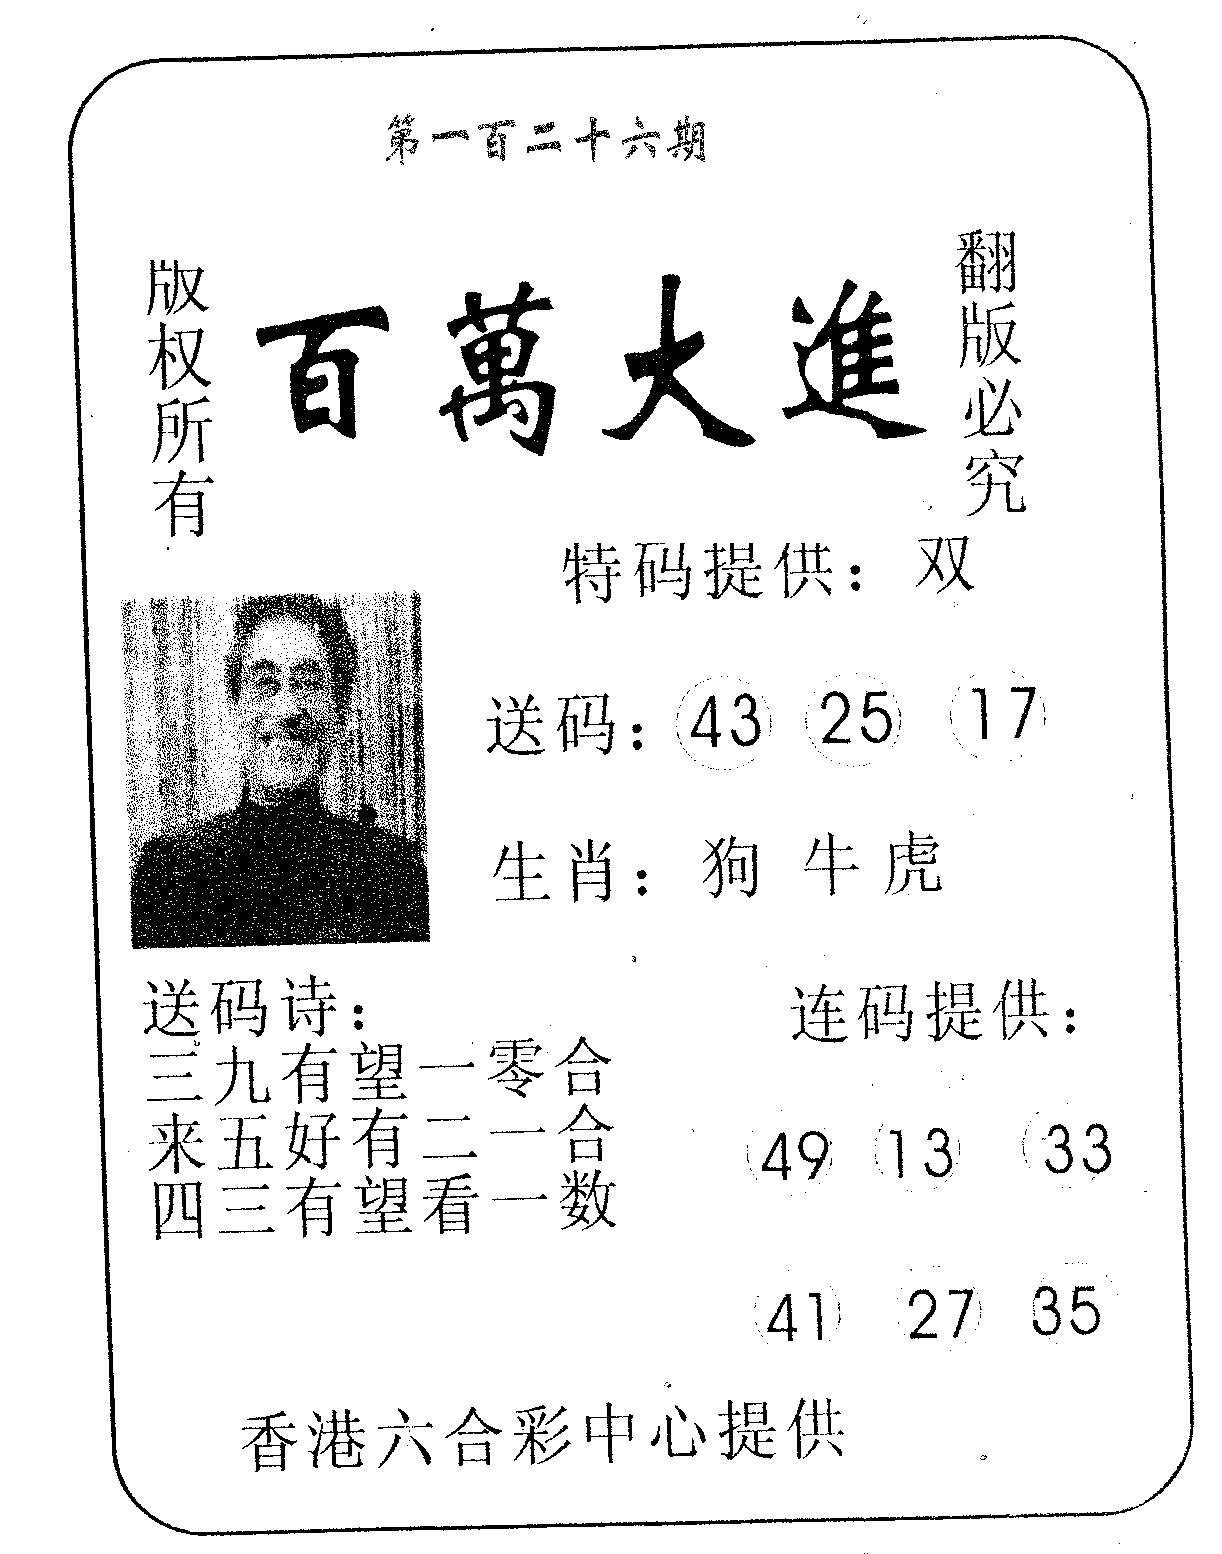 第一百二十六期
版权所有
百萬大進
翻版必究
特码提供：双
送码：43 25 17
生肖：狗 牛 虎
送码诗：
三九有望一零合
来五好有二一合
四三有望看一数
连码提供：
49 13 33
41 27 35
香港六合彩中心提供